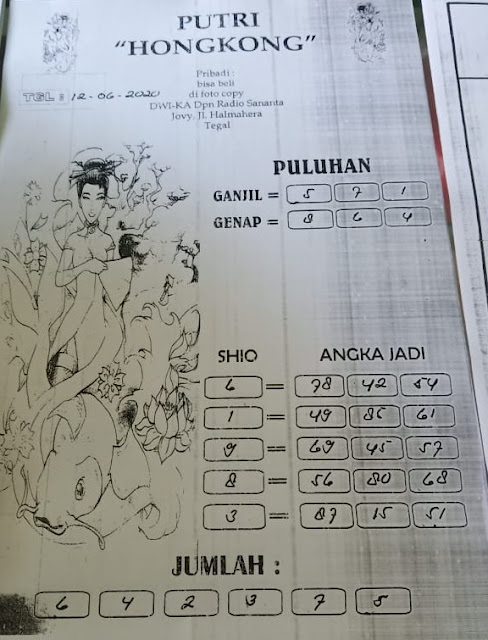 PUTRI
“HONGKONG”
Pribadi :
bisa beli
di foto copy
DWI-KA Dpn Radio Sananta
Jovy. Jl. Halmahera
Tegal
TGL : 12-06-2020
PULUHAN
GANJIL = 5 7 1
GENAP = 8 6 4
SHIO ANGKA JADI
6 = 78 42 54
1 = 49 85 61
9 = 69 45 57
8 = 56 80 68
3 = 87 15 51
JUMLAH :
6 4 2 3 7 5